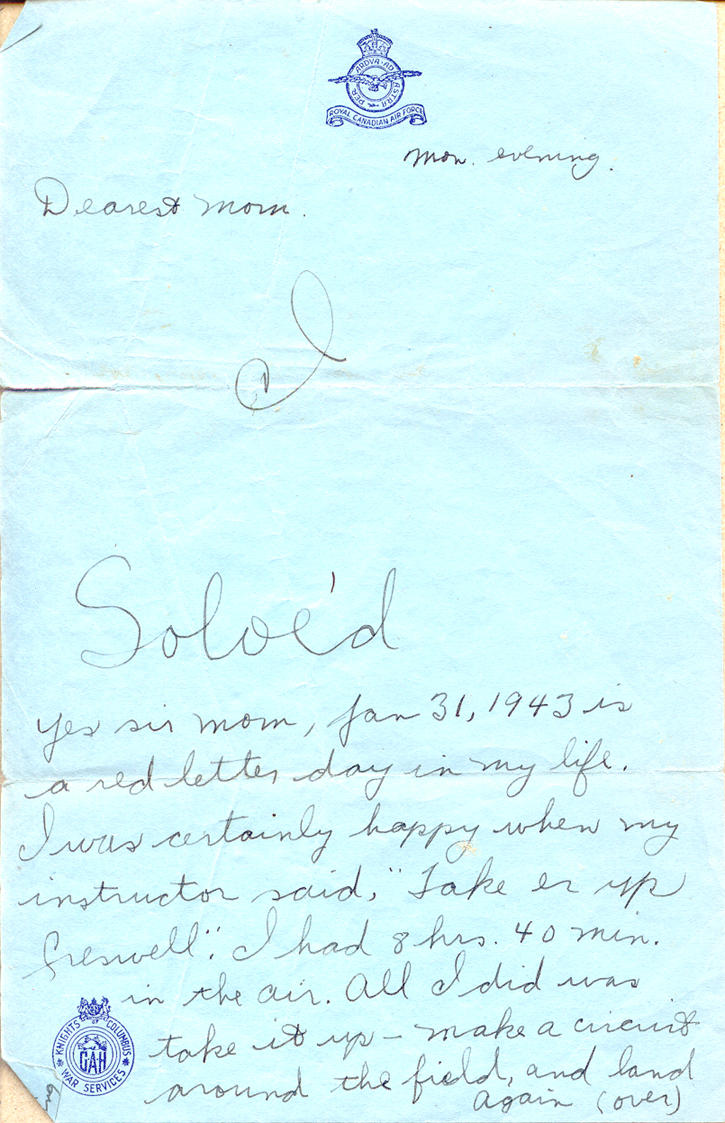 PER ARDVA AD ASTRA
ROYAL CANADIAN AIR FORCE
Mon. evening.
Dearest Mom.
I
Soloe'd
Yes sir mom, Jan 31, 1943 is
a red letter day in my life.
I was certainly happy when my
instructor said, "Take er up
". I had 8 hrs. 40 min.
in the air. All I did was
take it up – make a circuit
around the field, and land
again (over)
KNIGHTS OF COLUMBUS
CAH
WAR SERVICES